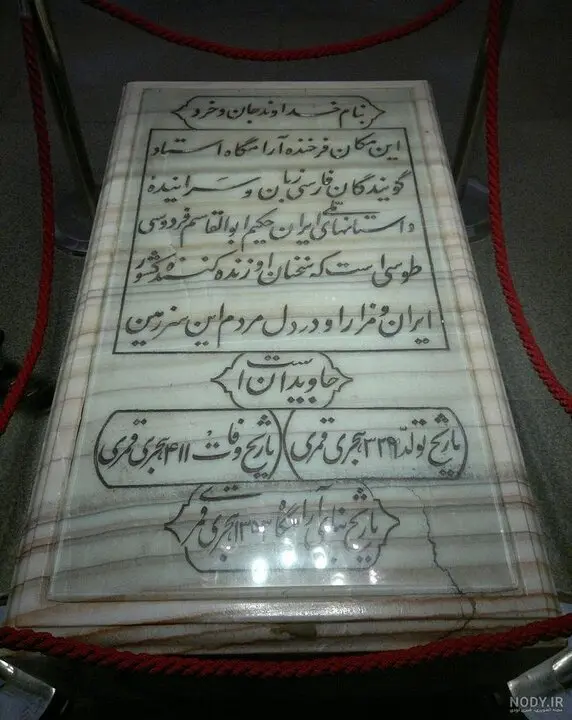 بنام خداوند جان و خرد
این مکان فرخنده آرامگاه استاد
گویندگان فارسی زبان و سراینده
داستانهای ملی ایران حکیم ابوالقاسم فردوسی
طوسی است که سخنان او زنده کننده کشور
ایران و مزار او در دل مردم این سرزمین
جاویدان است
تاریخ تولد ۳۲۹ هجری قمری
تاریخ وفات ۴۱۱ هجری قمری
تاریخ بنای آرامگاه ۱۳۵۳ هجری
NODY.IR